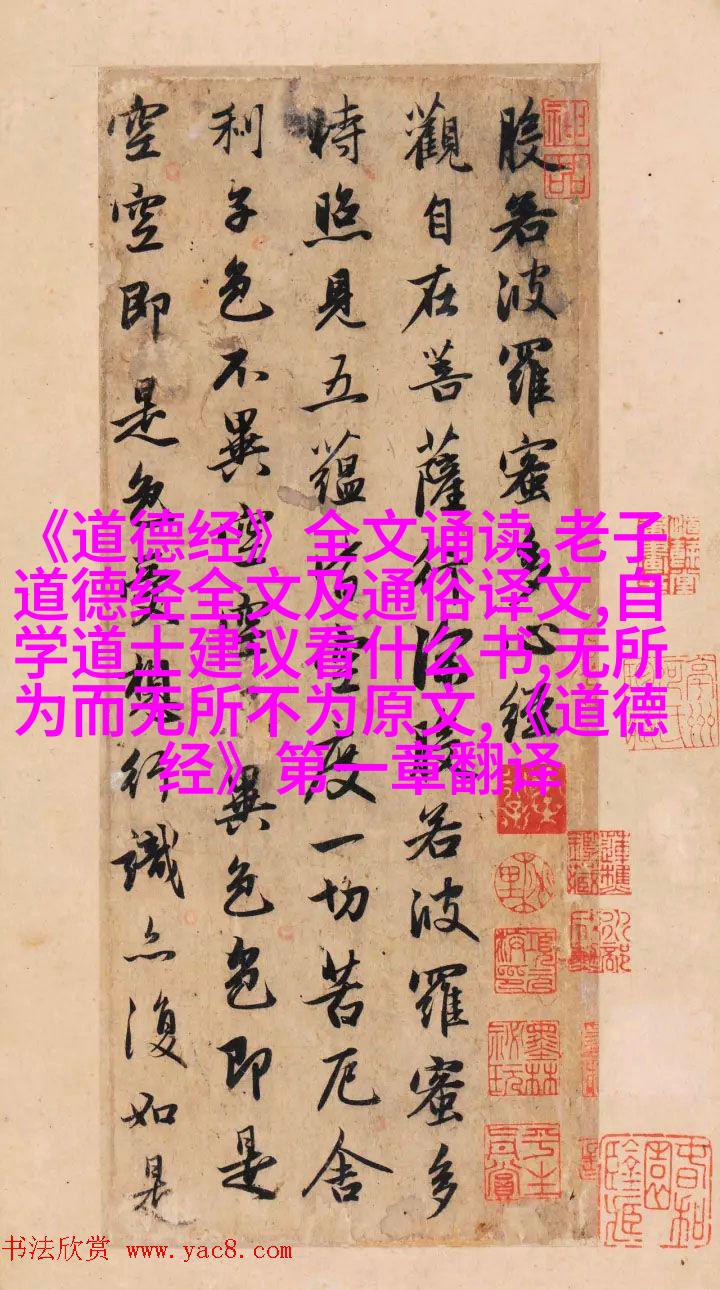 般若波羅蜜多心經
觀自在菩薩行深般若波羅蜜多
時照見五蘊皆空度一切苦厄舍
利子色不異空空不異色色即是
空空即是色受想行識亦復如是
《道德经》全文诵读,老子
道德经全文及通俗译文,自
学道士建议看什么书,无所
为而无所不为原文,《道德
经》第一章翻译
神品
墨林祕玩
书法欣赏 www.yac8.com